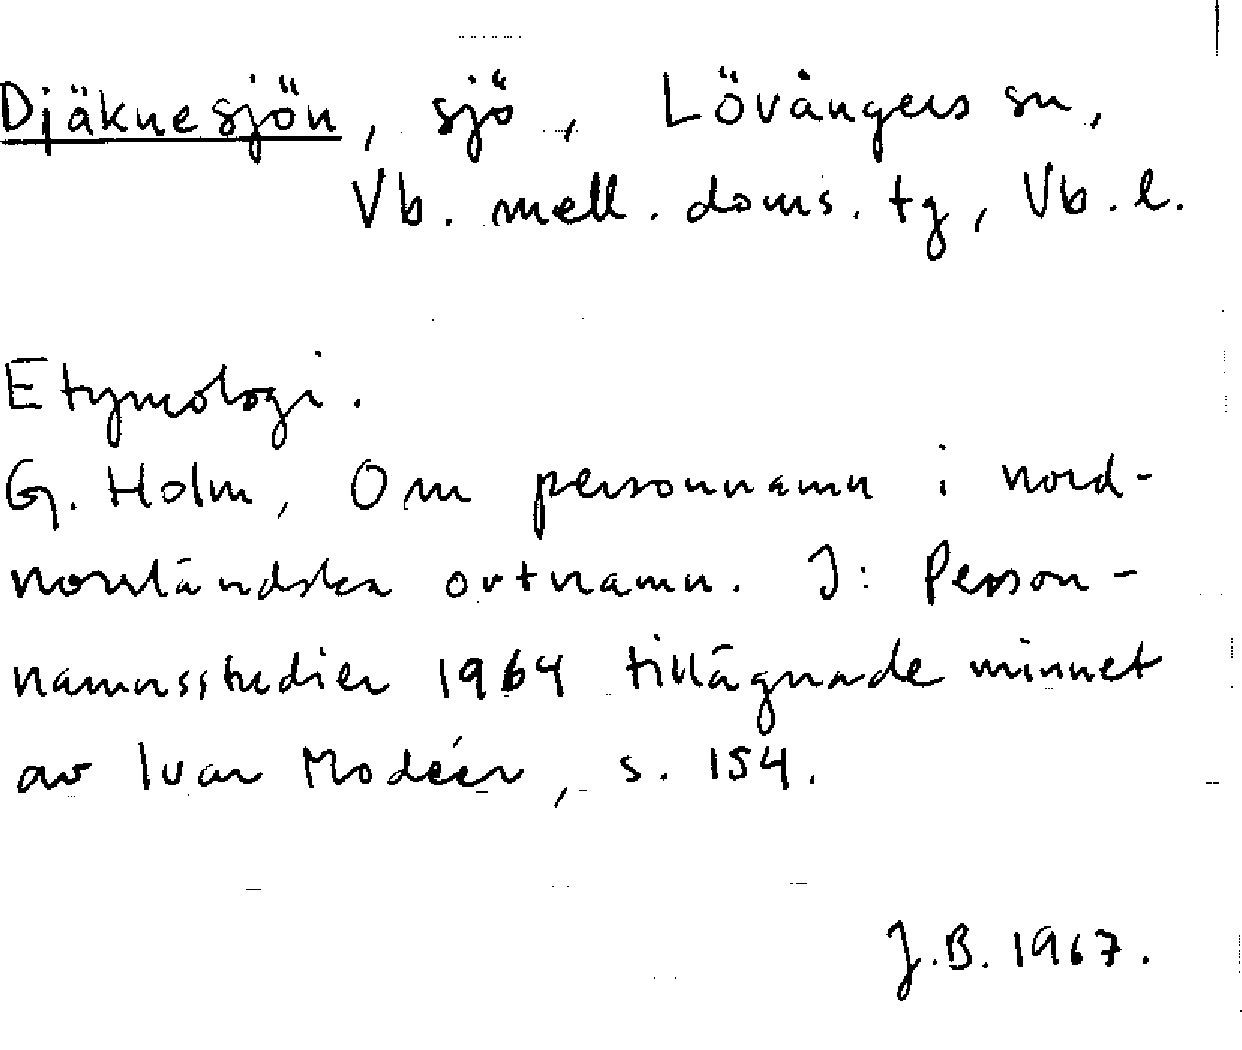 Djäknesjön, sjö, Lövångers sn,
Vb. mell. doms. tg, Vb. l.
Etymologi.
G. Holm, Om personnamn i nord-
norrländska ortnamn. I: Person-
namnsstudier 1964 tillägnade minnet
av Ivar Modéer, s. 154.
J.B. 1967.